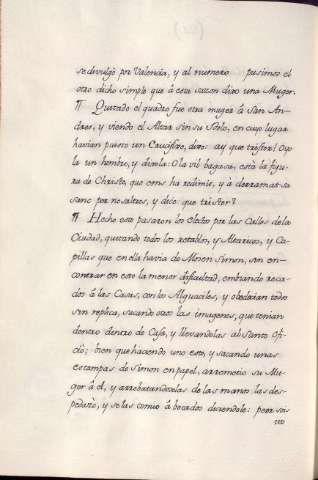 se divulgò por Valencia, y al numero pusimos el
otro dicho simple que à esta sazon dixo una Muger.
¶ Quitado el quadro fue otra muger à San An-
dres, y viendo el Altar sin su Santo, en cuyo lugar
havian puesto un Crucifixo, dixo: ay que tristor! Oyo
la un hombre, y dixola: O la vil bagasa, està la figu-
ra de Christo, que ens ha redimit, y à derramat sa
sanc por nosaltres, y dice que tristor?
¶ Hecho esto pasaron los Electos por las Calles de la
Ciudad, quitando todos los retablos, y Altaricos, y Ca-
pillas que en ella havia de Mosen Simon, sin en-
contrar en esto la menor dificultad, embiando reca-
dos à las Casas, con los Alguaciles, y obedecian todos
sin replica, sacando unos las imagenes, que tenian
dentro de Casa, y llevandolas al Santo Ofi-
cio; bien que haciendo uno esto, y sacando unas
estampas de Simon en papel, arremetio su Mu-
ger à èl, y arrebatandoselas de las manos las des-
pedazò, y se las comio à bocados diciendole: pese